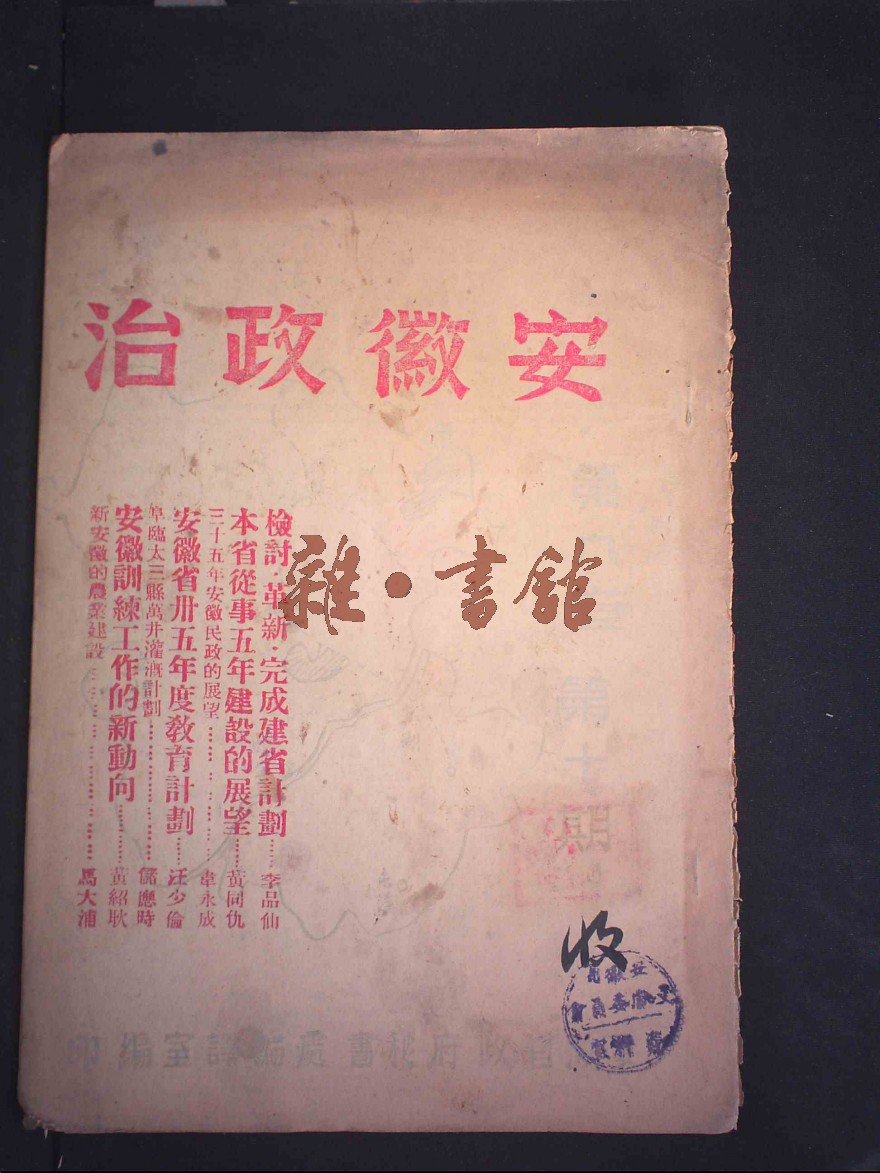 安徽政治
檢討·革新·完成建省計劃……李品仙
本省從事五年建設的展望……黃同仇
三十五年安徽民政的展望……韋永成
安徽省卅五年度教育計劃……汪少倫
阜臨太三縣萬井灌溉計劃……儲應時
安徽訓練工作的新動向……黃紹耿
新安徽的農業建設……馬大浦
雜·書館
第
第十期
收
省政府秘書處編譯室編印